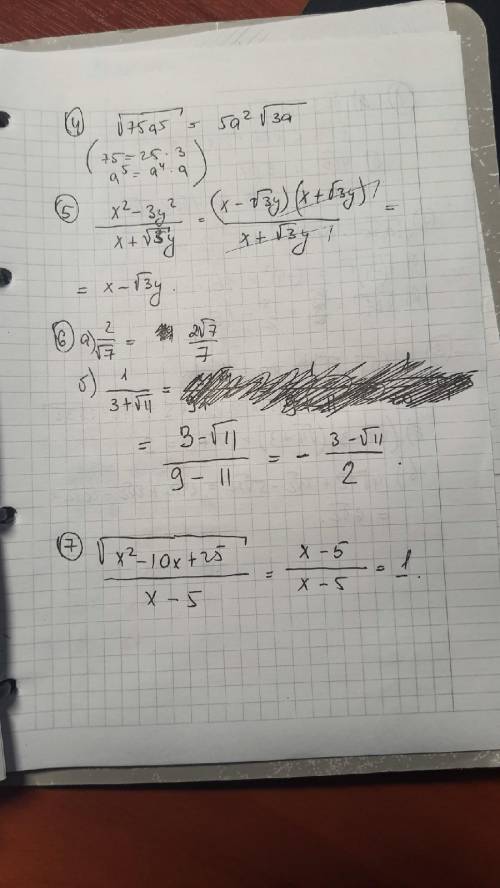 ④ √75a⁵ = 5a²√3a
(75 = 25 · 3
a⁵ = a⁴ · a)
⑤ (x² - 3y²)/(x + √3y) = ((x - √3y)(x + √3y))/(x + √3y) =
= x - √3y.
⑥ а) 2/√7 = 2√7/7
б) 1/(3 + √11) =
= (3 - √11)/(9 - 11) = - (3 - √11)/2.
⑦ √x² - 10x + 25/(x - 5) = (x - 5)/(x - 5) = 1.